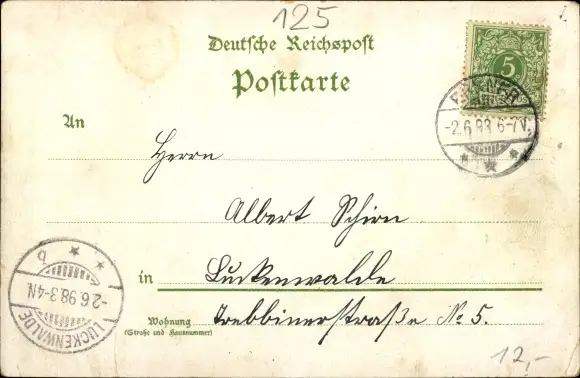 125
Deutsche Reichspost
Postkarte
5
-2.6.98 6-7V.
An
Herrn
Albert Schirn
in Luckenwalde
Wohnung
(Straße und Hausnummer)
Trebbinerstraße No 5.
LUCKENWALDE
-2.6.98.3-4N.
b
12,-